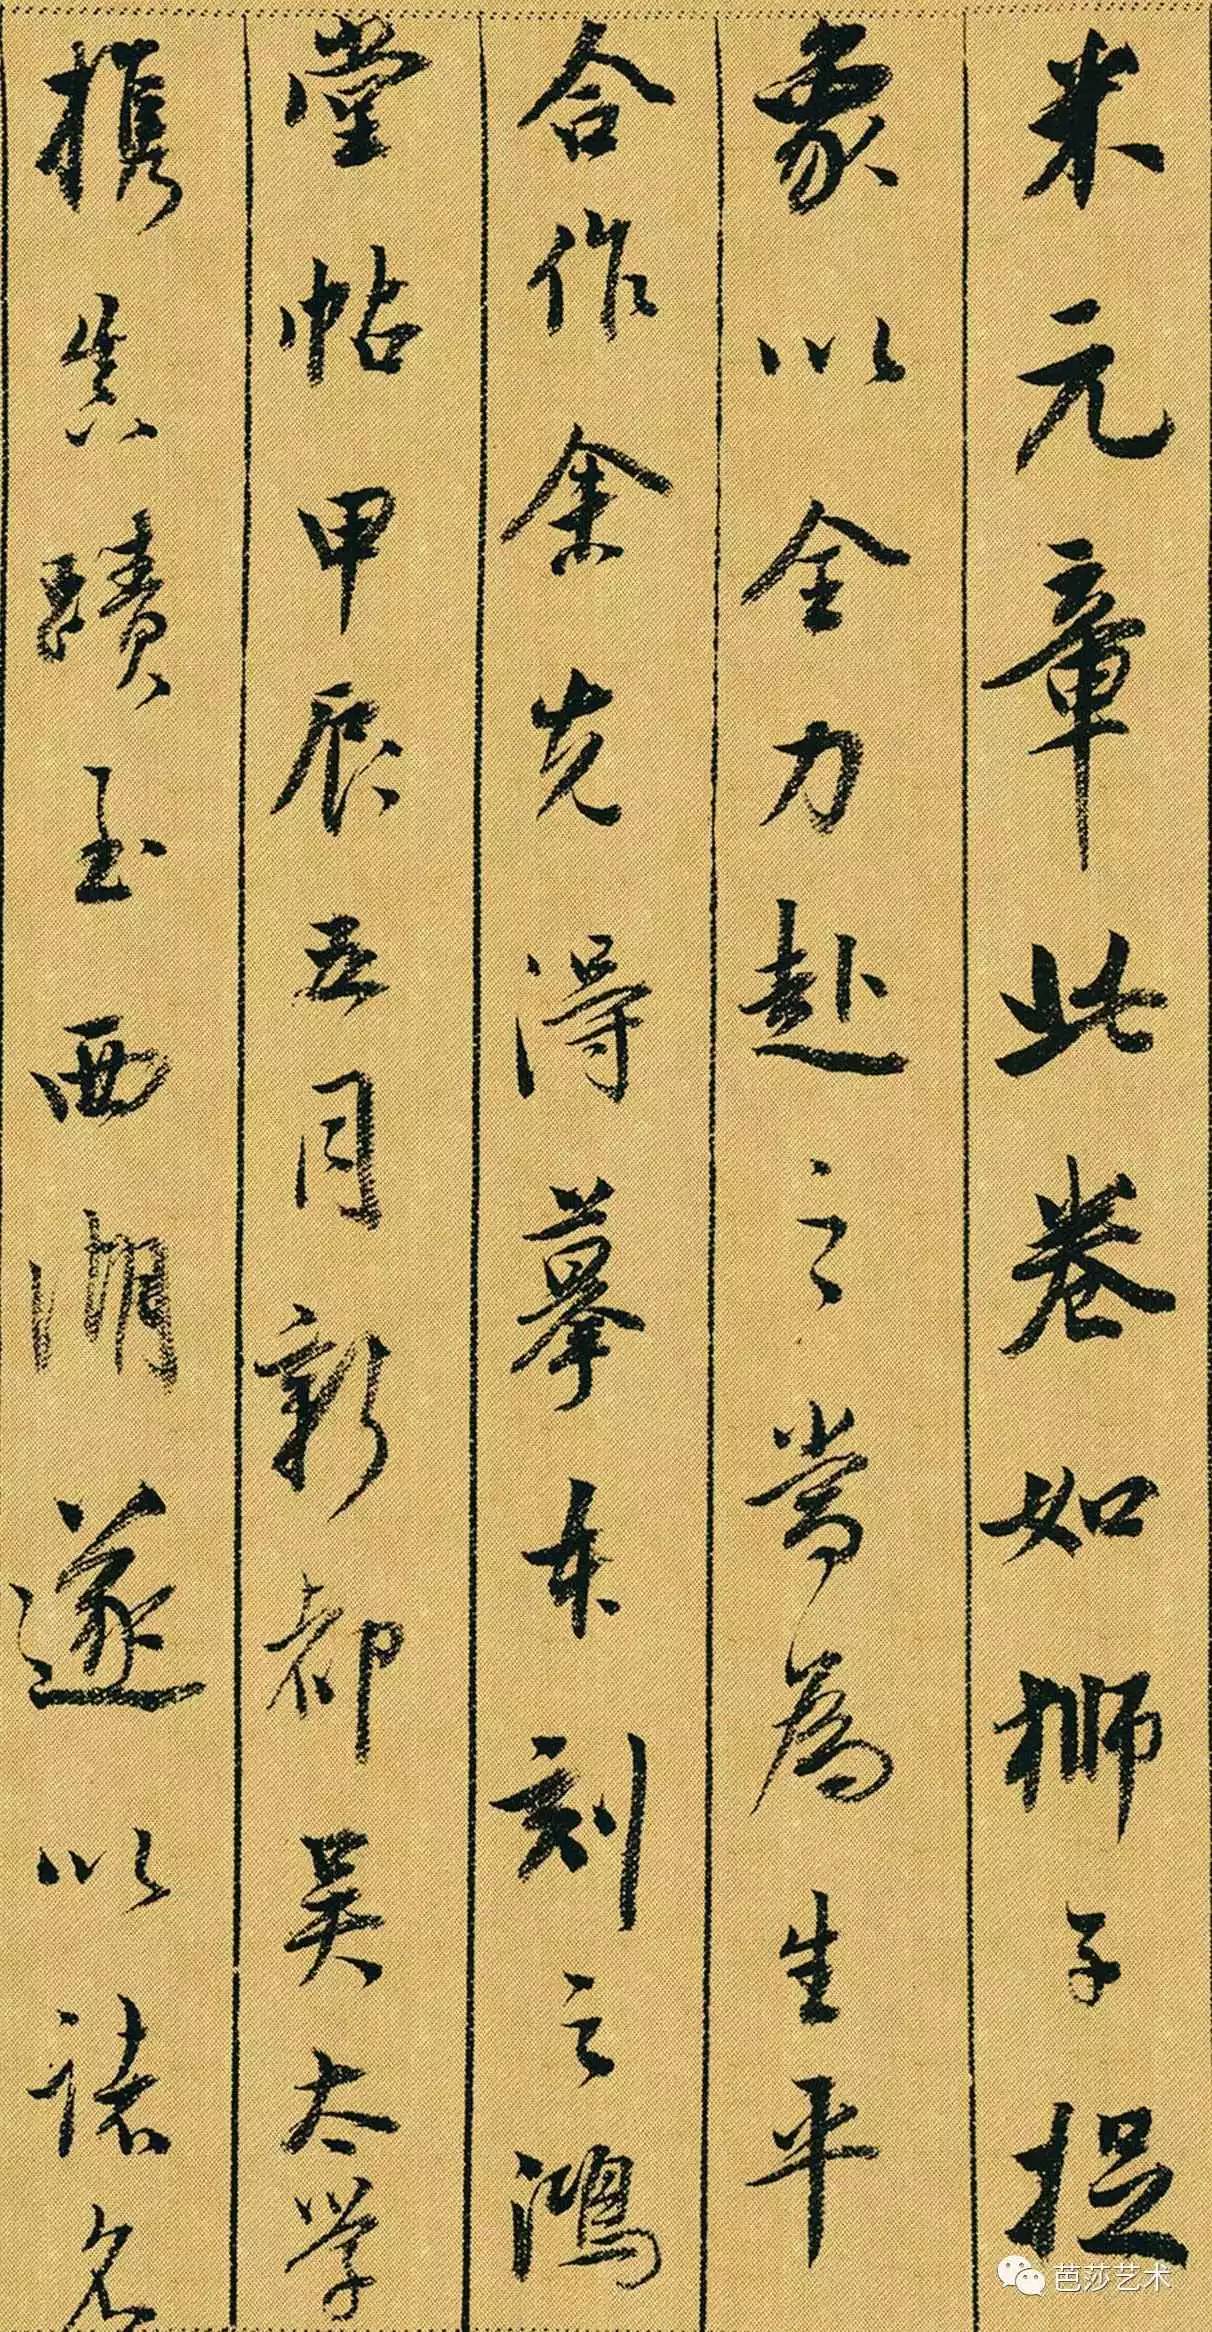 米元章此卷如狮子捉
象以全力赴之當為生平
合作余先得摹本刻之鴻
堂帖甲辰五月新都吴太学
携真蹟至西湖遂以诸名
芭莎艺术